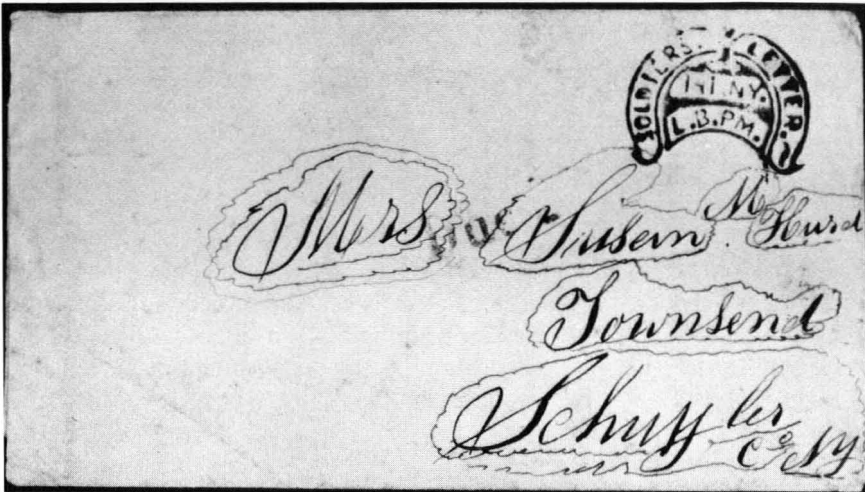 SOLDIERS. LETTER.
141.NY.
L.B.P.M.
Mrs Susan M. Hurd
Townsend
Schuyler
Co NY